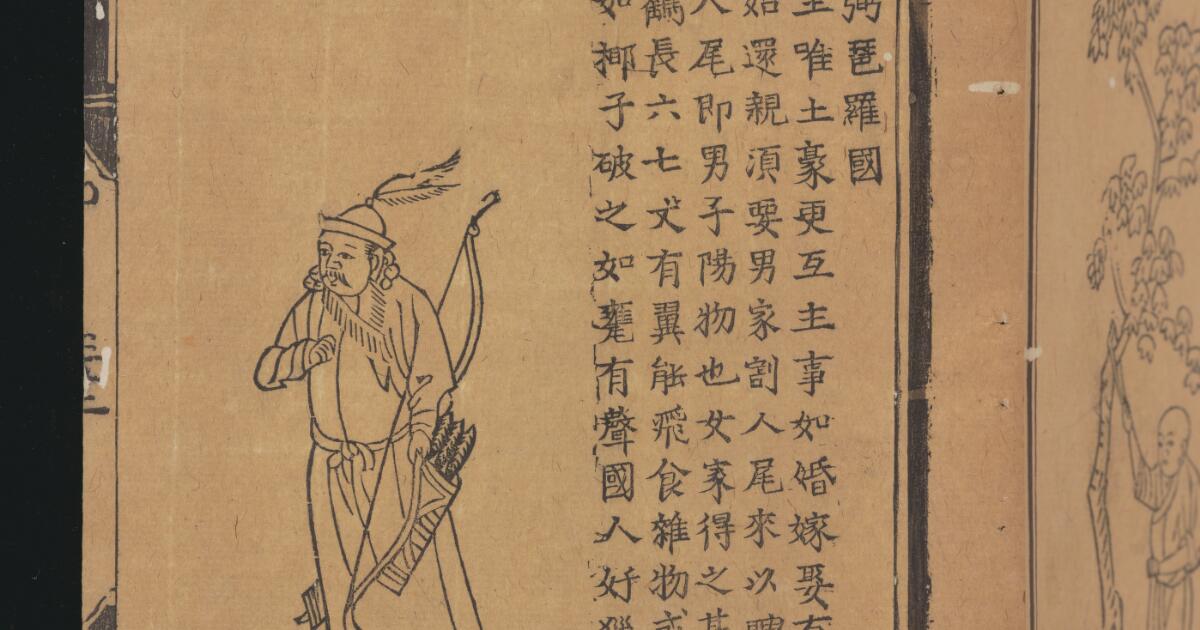 弼琶羅國
主唯土豪更互主事如婚嫁娶有
始還親湏要男家割人尾來以聘
人尾即男子陽物也女家得之甚
鶴長六七丈有翼能飛食雜物或
如揶子破之如甕有聲國人好獵